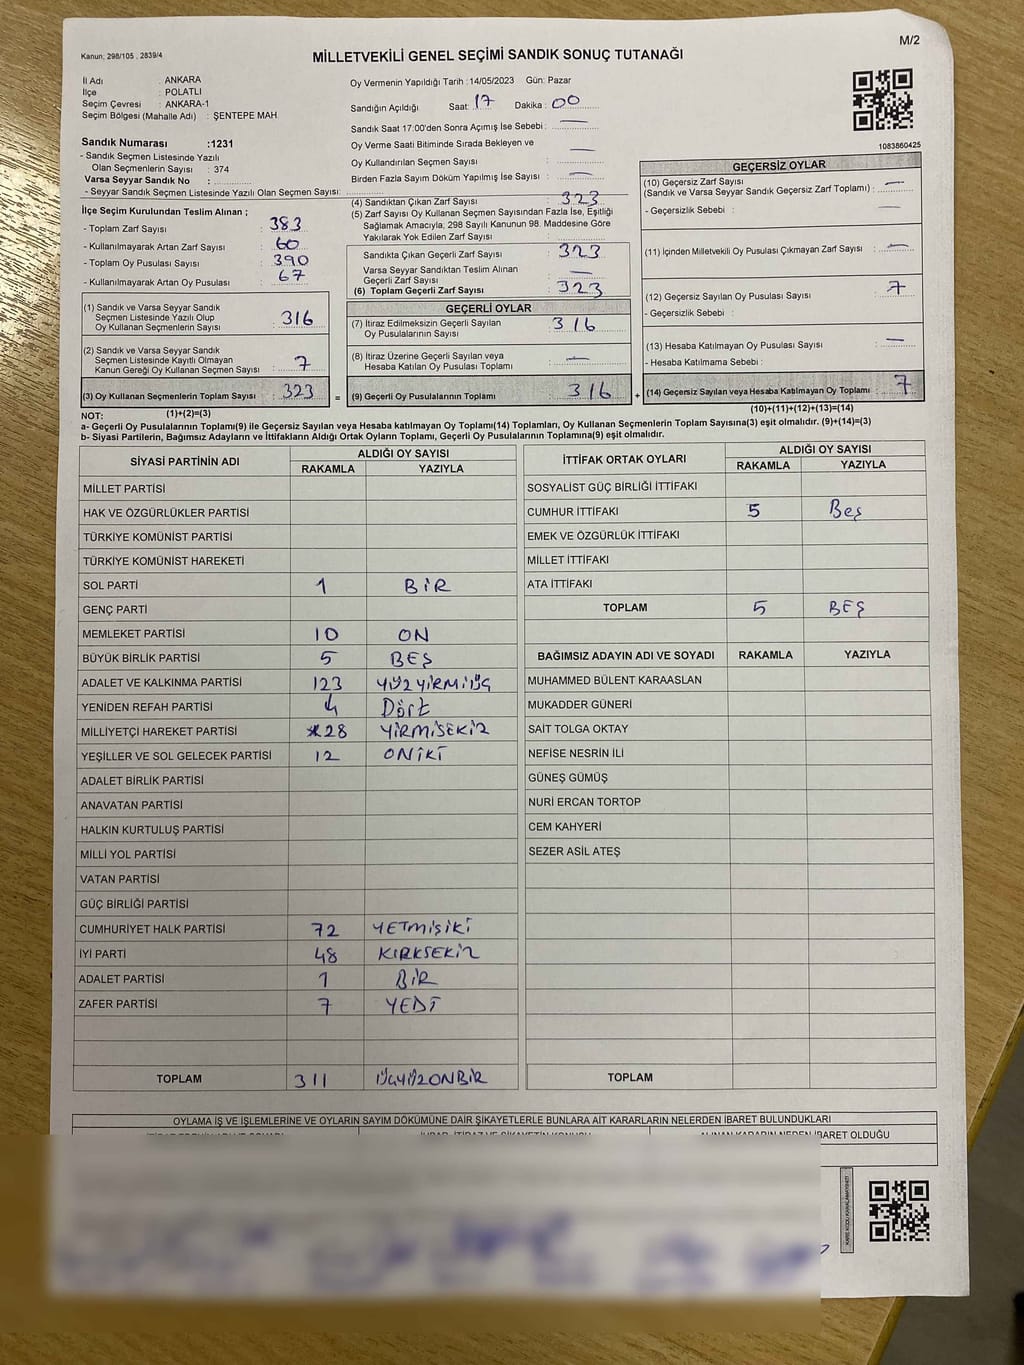 M/2
Kanun: 298/105 , 2839/4
MİLLETVEKİLİ GENEL SEÇİMİ SANDIK SONUÇ TUTANAĞI
İl Adı : ANKARA
İlçe : POLATLI
Seçim Çevresi : ANKARA-1
Seçim Bölgesi (Mahalle Adı) : ŞENTEPE MAH
Sandık Numarası :1231
- Sandık Seçmen Listesinde Yazılı
Olan Seçmenlerin Sayısı : 374
Varsa Seyyar Sandık No :
- Seyyar Sandık Seçmen Listesinde Yazılı Olan Seçmen Sayısı:
Oy Vermenin Yapıldığı Tarih :14/05/2023 Gün: Pazar
Sandığın Açıldığı Saat: 17 Dakika: 00
Sandık Saat 17:00'den Sonra Açımış İse Sebebi : —
Oy Verme Saati Bitiminde Sırada Bekleyen ve
Oy Kullandırılan Seçmen Sayısı : —
Birden Fazla Sayım Döküm Yapılmış İse Sayısı : —
1083860425
İlçe Seçim Kurulundan Teslim Alınan ;
- Toplam Zarf Sayısı : 383
- Kullanılmayarak Artan Zarf Sayısı : 60
- Toplam Oy Pusulası Sayısı : 390
- Kullanılmayarak Artan Oy Pusulası : 67
(1) Sandık ve Varsa Seyyar Sandık
Seçmen Listesinde Yazılı Olup
Oy Kullanan Seçmenlerin Sayısı : 316
(2) Sandık ve Varsa Seyyar Sandık
Seçmen Listesinde Kayıtlı Olmayan
Kanun Gereği Oy Kullanan Seçmen Sayısı : 7
(3) Oy Kullanan Seçmenlerin Toplam Sayısı : 323 =
(1)+(2)=(3)
(4) Sandıktan Çıkan Zarf Sayısı : 323
(5) Zarf Sayısı Oy Kullanan Seçmen Sayısından Fazla İse, Eşitliği
Sağlamak Amacıyla, 298 Sayılı Kanunun 98. Maddesine Göre
Yakılarak Yok Edilen Zarf Sayısı :
Sandıkta Çıkan Geçerli Zarf Sayısı : 323
Varsa Seyyar Sandıktan Teslim Alınan
Geçerli Zarf Sayısı : —
(6) Toplam Geçerli Zarf Sayısı : 323
GEÇERLİ OYLAR
(7) İtiraz Edilmeksizin Geçerli Sayılan
Oy Pusulalarının Sayısı : 316
(8) İtiraz Üzerine Geçerli Sayılan veya
Hesaba Katılan Oy Pusulası Toplamı : —
(9) Geçerli Oy Pusulalarının Toplamı : 316 +
GEÇERSİZ OYLAR
(10) Geçersiz Zarf Sayısı
(Sandık ve Varsa Seyyar Sandık Geçersiz Zarf Toplamı) : —
- Geçersizlik Sebebi : —
(11) İçinden Milletvekili Oy Pusulası Çıkmayan Zarf Sayısı : —
(12) Geçersiz Sayılan Oy Pusulası Sayısı : 7
- Geçersizlik Sebebi :
(13) Hesaba Katılmayan Oy Pusulası Sayısı : —
- Hesaba Katılmama Sebebi :
(14) Geçersiz Sayılan veya Hesaba Katılmayan Oy Toplamı : 7
(10)+(11)+(12)+(13)=(14)
NOT:
a- Geçerli Oy Pusulalarının Toplamı(9) ile Geçersiz Sayılan veya Hesaba katılmayan Oy Toplamı(14) Toplamları, Oy Kullanan Seçmenlerin Toplam Sayısına(3) eşit olmalıdır. (9)+(14)=(3)
b- Siyasi Partilerin, Bağımsız Adayların ve İttifakların Aldığı Ortak Oyların Toplamı, Geçerli Oy Pusulalarının Toplamına(9) eşit olmalıdır.
SİYASİ PARTİNİN ADI ALDIĞI OY SAYISI
RAKAMLA YAZIYLA
MİLLET PARTİSİ
HAK VE ÖZGÜRLÜKLER PARTİSİ
TÜRKİYE KOMÜNİST PARTİSİ
TÜRKİYE KOMÜNİST HAREKETİ
SOL PARTİ 1 BİR
GENÇ PARTİ
MEMLEKET PARTİSİ 10 ON
BÜYÜK BİRLİK PARTİSİ 5 BEŞ
ADALET VE KALKINMA PARTİSİ 123 YÜZYİRMİÜÇ
YENİDEN REFAH PARTİSİ 4 Dört
MİLLİYETÇİ HAREKET PARTİSİ 28 YİRMİSEKİZ
YEŞİLLER VE SOL GELECEK PARTİSİ 12 ONİKİ
ADALET BİRLİK PARTİSİ
ANAVATAN PARTİSİ
HALKIN KURTULUŞ PARTİSİ
MİLLİ YOL PARTİSİ
VATAN PARTİSİ
GÜÇ BİRLİĞİ PARTİSİ
CUMHURİYET HALK PARTİSİ 72 YETMİŞİKİ
İYİ PARTİ 48 KIRKSEKİZ
ADALET PARTİSİ 1 BİR
ZAFER PARTİSİ 7 YEDİ
TOPLAM 311 ÜÇYÜZONBİR
İTTİFAK ORTAK OYLARI ALDIĞI OY SAYISI
RAKAMLA YAZIYLA
SOSYALİST GÜÇ BİRLİĞİ İTTİFAKI
CUMHUR İTTİFAKI 5 Beş
EMEK VE ÖZGÜRLÜK İTTİFAKI
MİLLET İTTİFAKI
ATA İTTİFAKI
TOPLAM 5 BEŞ
BAĞIMSIZ ADAYIN ADI VE SOYADI RAKAMLA YAZIYLA
MUHAMMED BÜLENT KARAASLAN
MUKADDER GÜNERİ
SAİT TOLGA OKTAY
NEFİSE NESRİN İLİ
GÜNEŞ GÜMÜŞ
NURİ ERCAN TORTOP
CEM KAHYERİ
SEZER ASİL ATEŞ
TOPLAM
OYLAMA İŞ VE İŞLEMLERİNE VE OYLARIN SAYIM DÖKÜMÜNE DAİR ŞİKAYETLERLE BUNLARA AİT KARARLARIN NELERDEN İBARET BULUNDUKLARI
ALINAN KARARIN NEDEN İBARET OLDUĞU